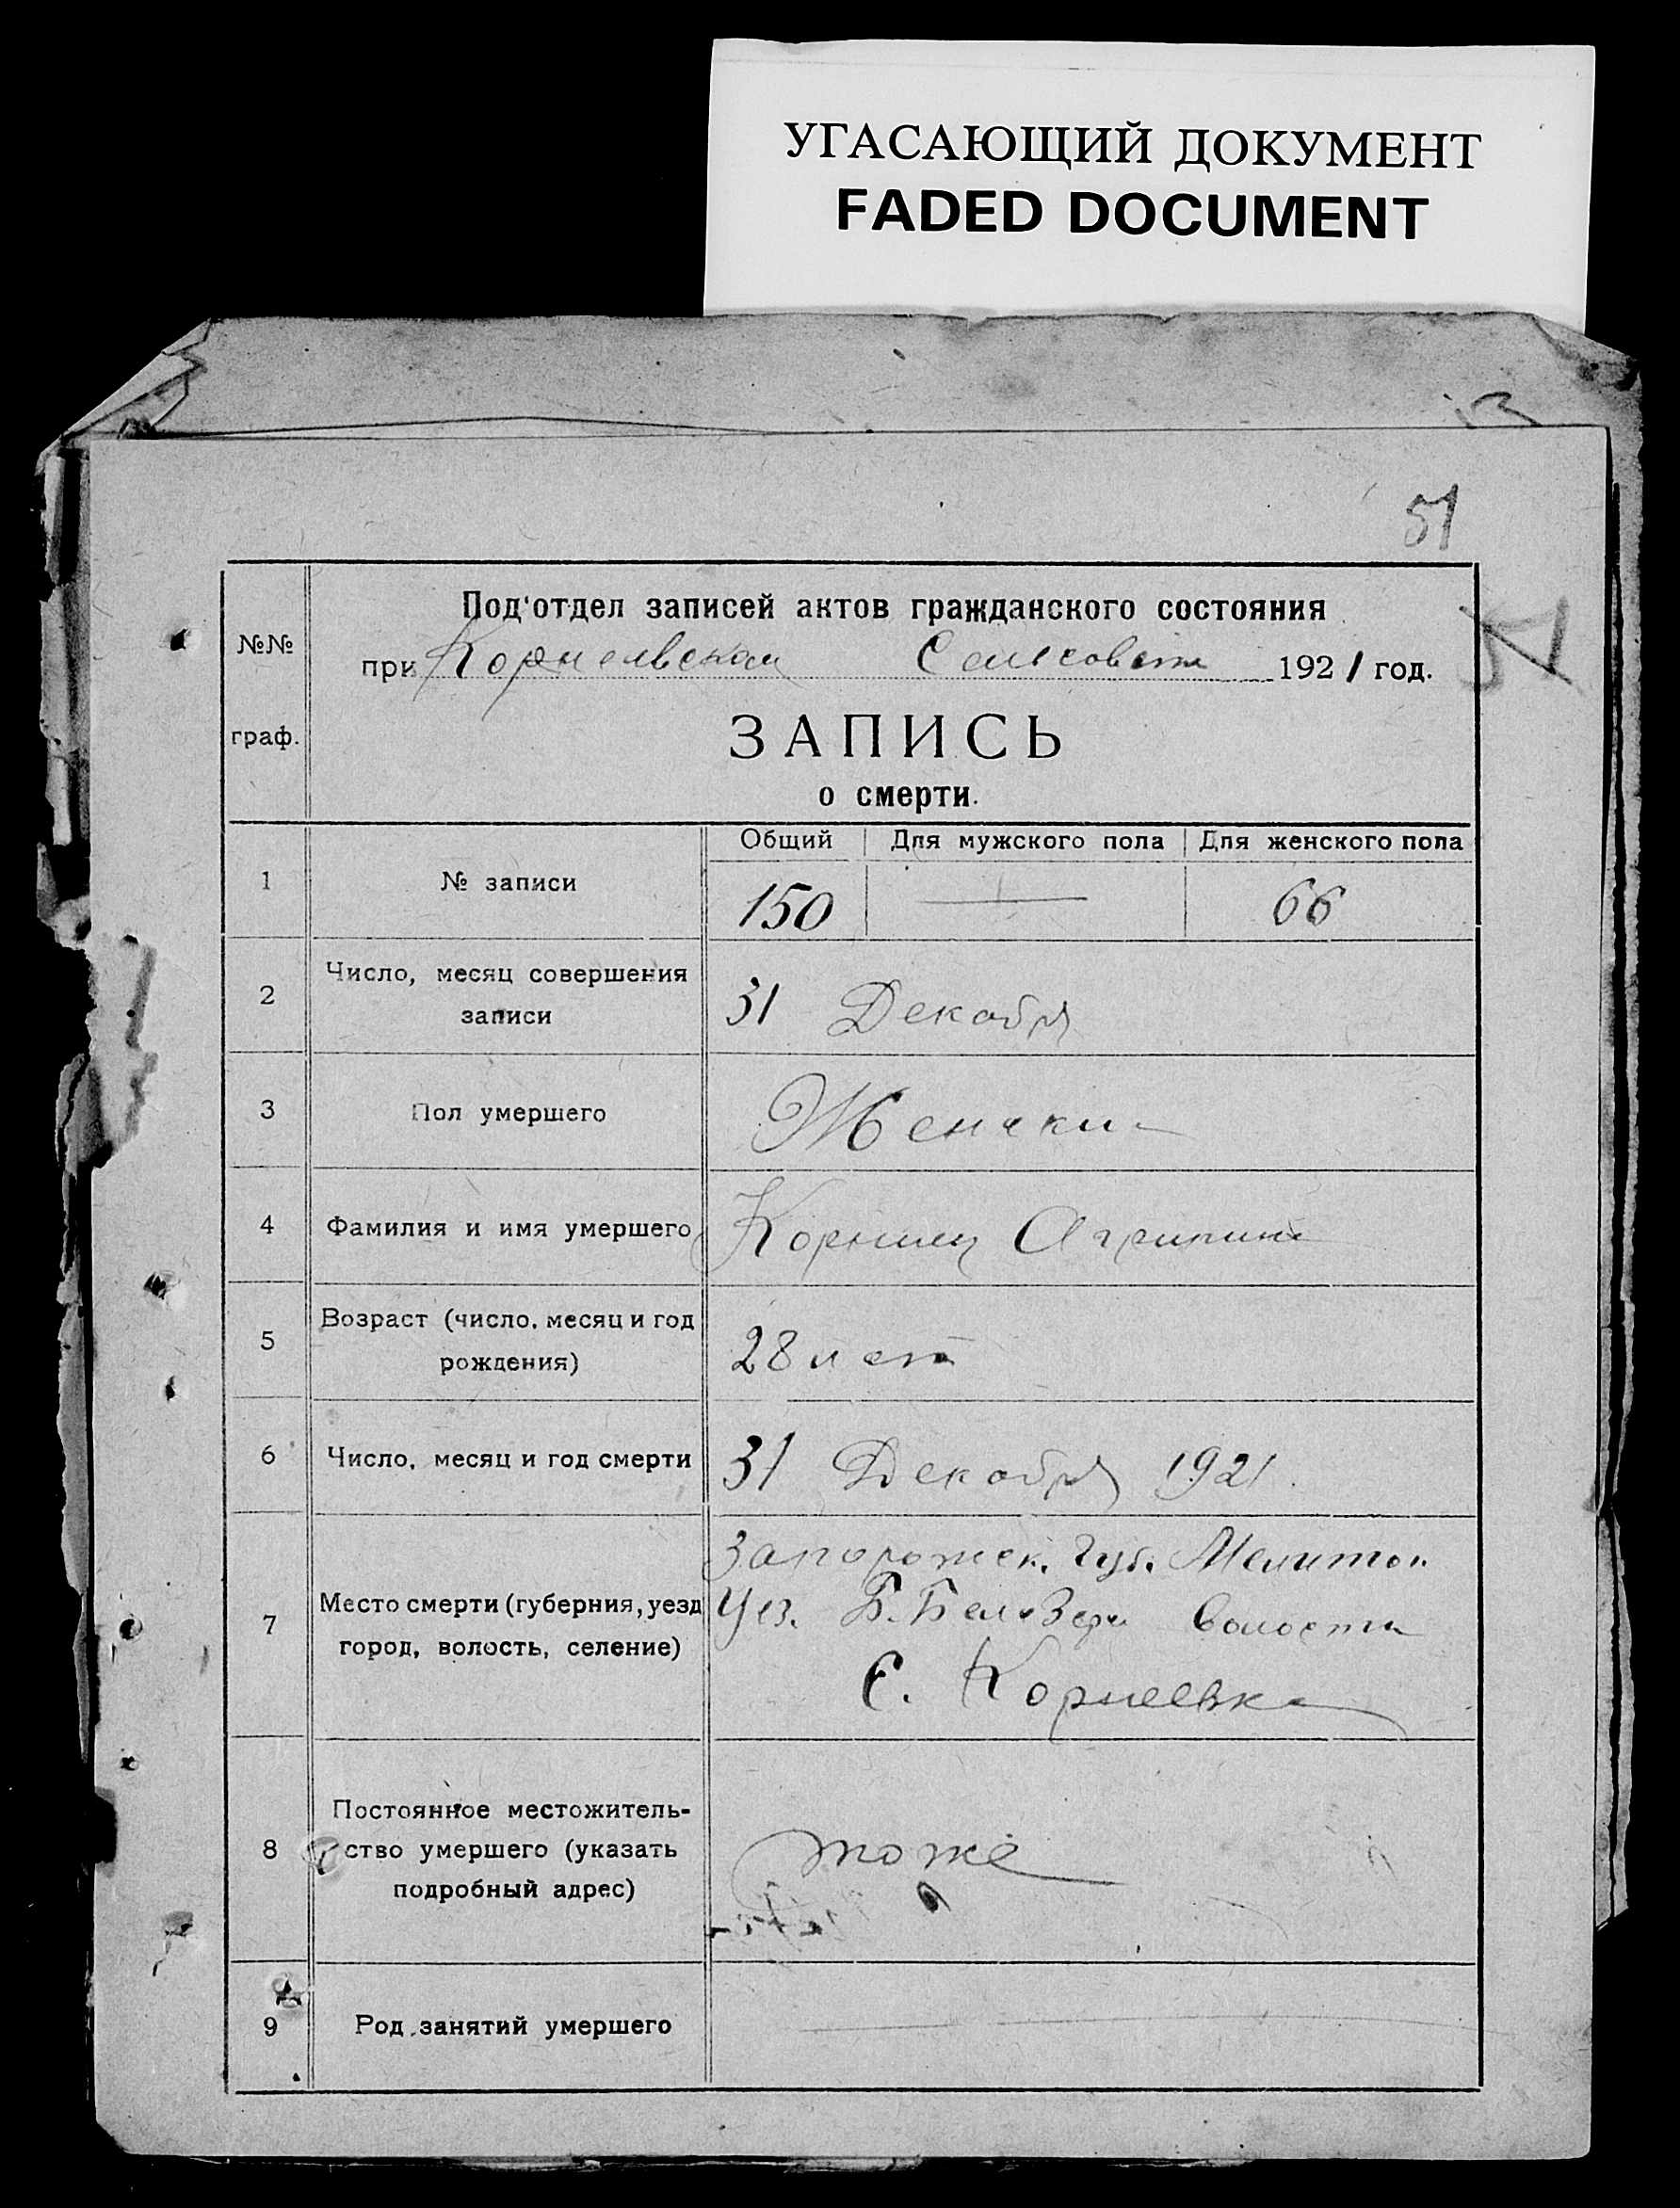 УГАСАЮЩИЙ ДОКУМЕНТ
FADED DOCUMENT
51
51
№№
граф.
Под'отдел записей актов гражданского состояния
при Корнеевском Сельсовете 1921 год.
ЗАПИСЬ
о смерти.
Общий Для мужского пола Для женского пола
1 № записи 150 — 66
2 Число, месяц совершения
записи
31 Декабря
3 Пол умершего Женски
4 Фамилия и имя умершего Корниец Агрипина
5 Возраст (число, месяц и год
рождения)
28 лет
6 Число, месяц и год смерти 31 Декабря 1921.
7 Место смерти (губерния, уезд
город, волость, селение)
Запорожск. Губ. Мелитоп.
Уез. Б. Белозер волости
С. Корнеевка
8 Постоянное местожитель-
ство умершего (указать
подробный адрес)
тоже
9 Род занятий умершего